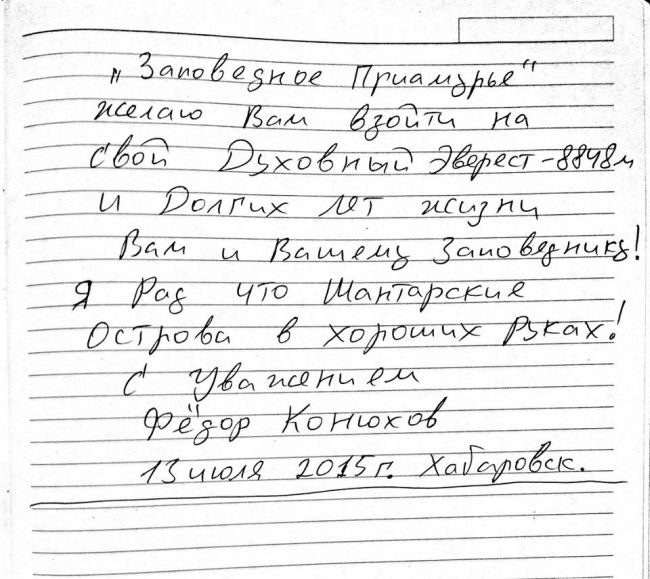 „Заповедное Приамурье"
желаю Вам взойти на
свой Духовный Эверест-8848м
и Долгих лет жизни
Вам и Вашему Заповеднику!
Я Рад что Шантарские
Острова в хороших Руках!
С Уважением
Фёдор Конюхов
13 июля 2015г. Хабаровск.